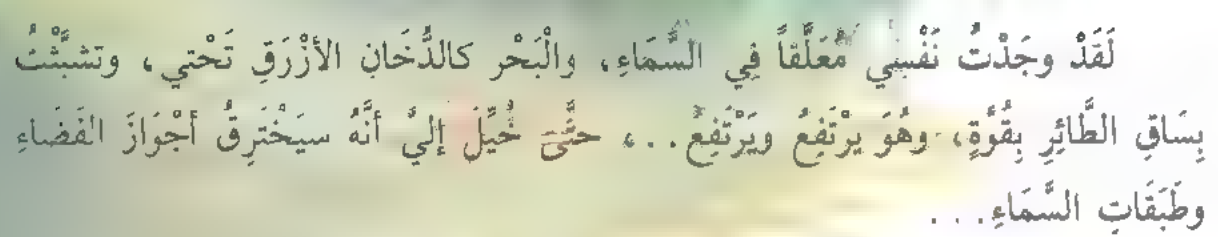 لَقَدْ وجَدْتُ نَفْسِي مُعَلَّقاً فِي السَّمَاءِ، والْبَحْر كالدُّخَانِ الأزْرَقِ تَحْتي، وتشبَّثْتُ
بِسَاقِ الطَّائِرِ بِقُوَّةٍ، وهُوَ يرْتَفِعُ ويَرْتَفِعُ..، حتَّى خُيِّلَ إليَّ أنَّهُ سيَخْتَرِقُ أجْوَازَ الفَضَاءِ
وطَبَقَاتِ السَّمَاءِ...